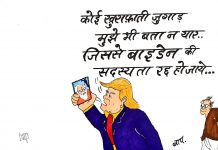 कोई खुराफाती जुगाड़
मुझे भी बता न यार..
जिससे बाइडेन की
सदस्यता रद्द हो जाये...